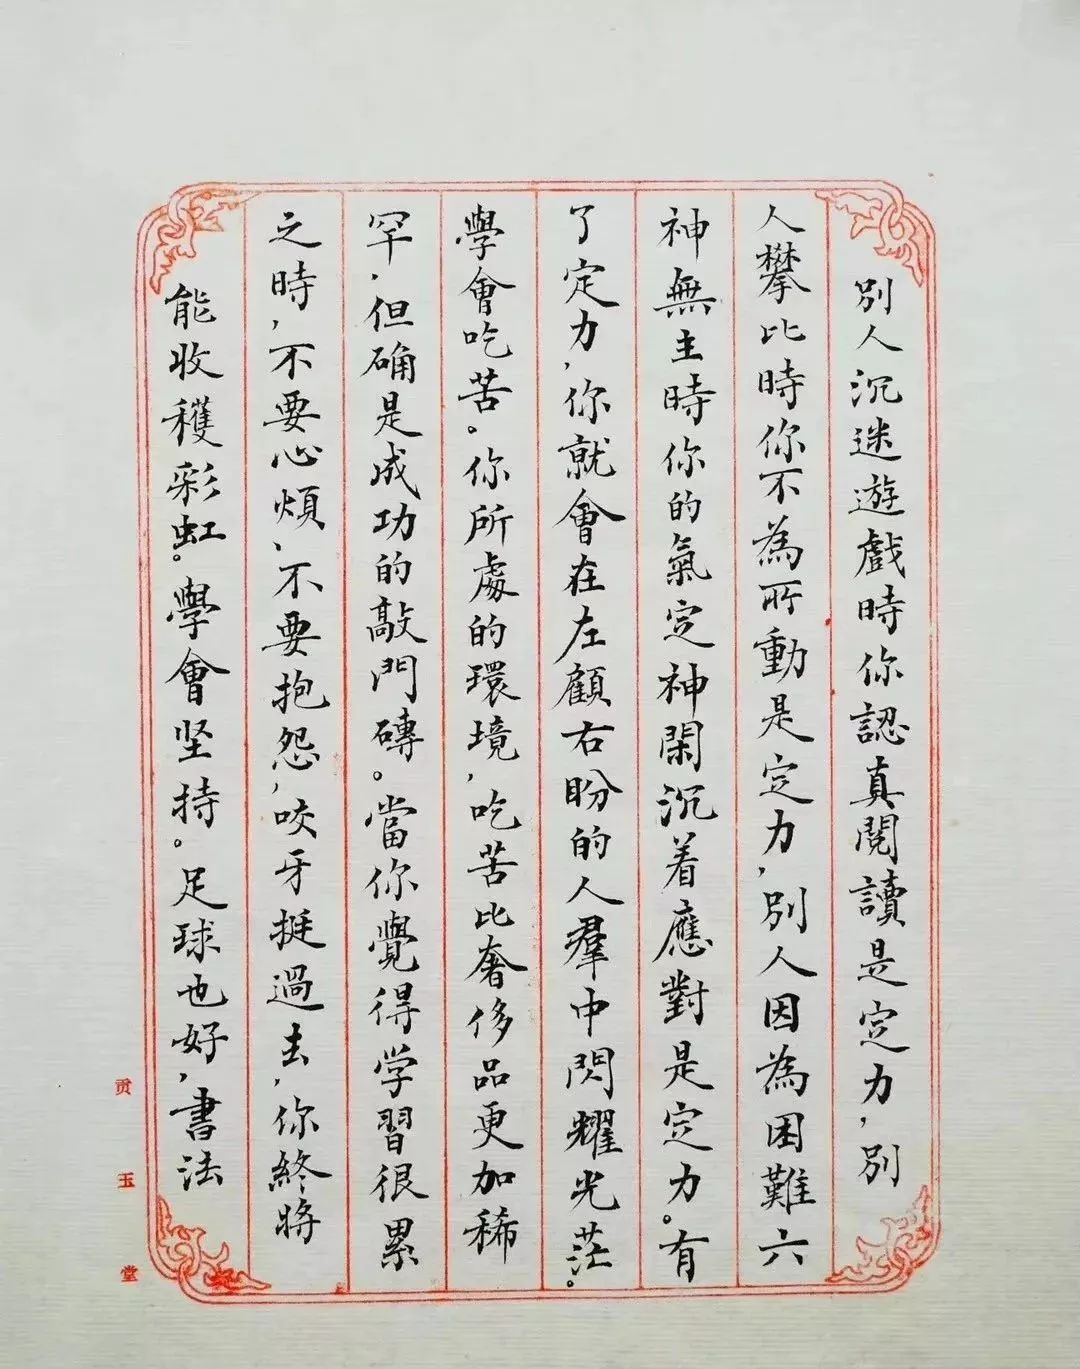 別人沉迷遊戲時你認真閱讀是定力,別
人攀比時你不為所動是定力,別人因為困難六
神無主時你的氣定神閑沉着應對是定力。有
了定力,你就會在左顧右盼的人羣中閃耀光茫。
學會吃苦。你所處的環境,吃苦比奢侈品更加稀
罕,但确是成功的敲門磚。當你覺得学習很累
之時,不要心煩、不要抱怨,咬牙挺過去,你終將
能收穫彩虹。學會坚持。足球也好,書法
贡玉堂